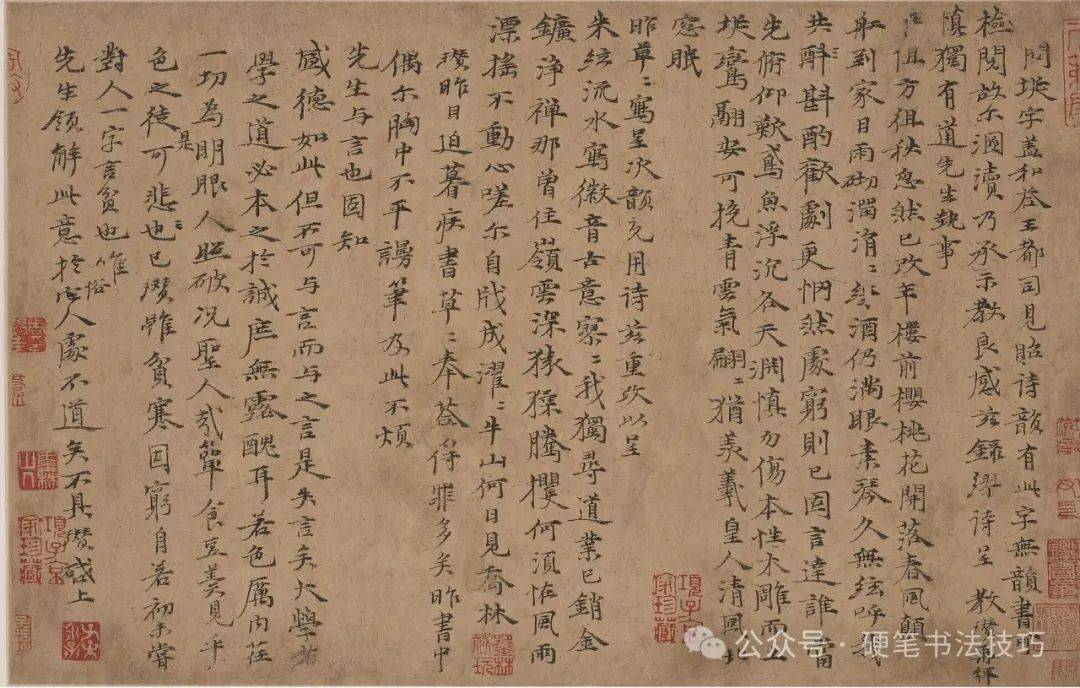 問垗字蓋和答王都司見貽詩韻有此字無韻書可
檢閱故尔溷瀆乃承示教良感茲錄繆诗呈 教瓚再拜
慎獨有道先生執事
沮方徂秋忽然已改年樓前櫻桃花開落春風顛
舡到家日雨砌潤涓ミ 酒仍滿眼素琴久無絃呼我
共酙ミ斟酌歡劇更惘然處窮則已固言達誰當
先俯仰歎鳶魚浮沉各天淵慎勿傷本性木雕而土
垗鸞翮安可挽青雲氣翩ミ猶羨羲皇人清風北
窓眠
昨草ミ寫呈次韻 用诗茲重改以呈
朱絃流水寫徽音古意寥ミ我獨尋道業已銷金
鑛净禅那曾住嶺雲深猿猱騰攫何須怖風雨
漂搖不動心嗟尔自戕成濯ミ牛山何日見喬林
瓚昨日迫暮疾書草ミ奉荅得罪多矣昨書中
偶尔胸中不平謾筆及此不煩
先生与言也固知
盛德如此但不可与言而与之言是失言矣大學
學之道必本之於誠庶無露醜耳若色厲内荏
一切為明眼人照破况聖人哉簞食豆羹見乎
色之徒是可悲也已瓚雖貧寒困窮自若初未嘗
對人一字言貧也惟俗
先生領解此意於它人處不道矣不具瓚啟上
項子京家珍藏
項子京家珍藏
公众号·硬笔书法技巧